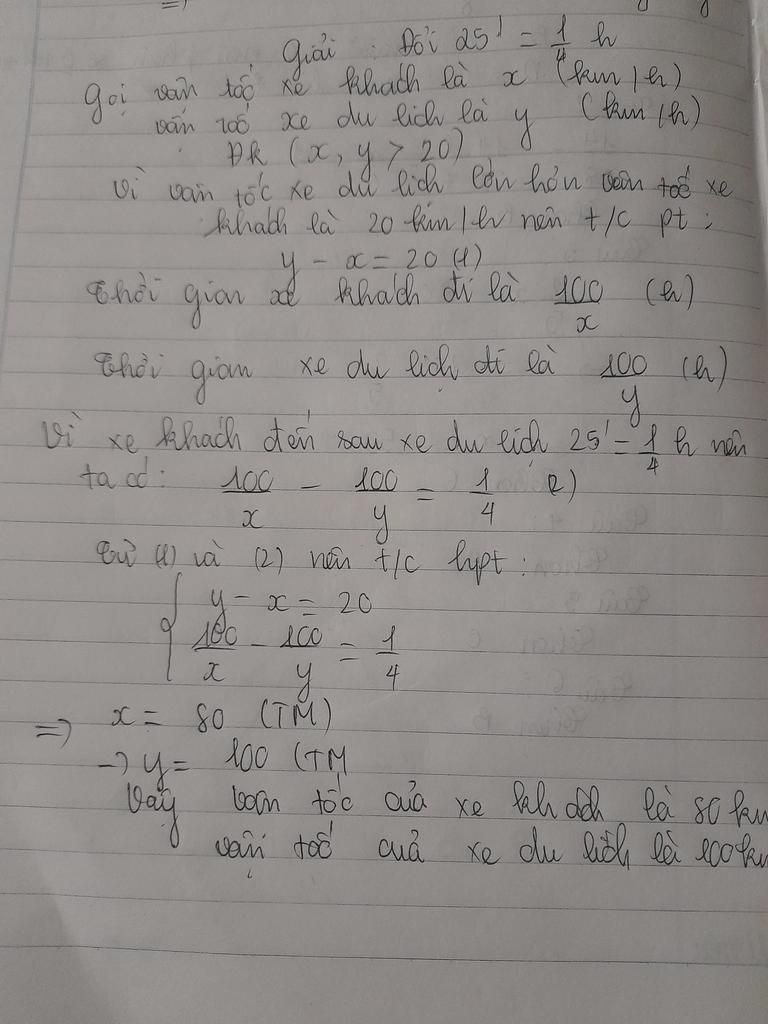 Giải : Đổi 25' = 1/4 h
Gọi vận tốc xe khách là x (km/h)
vận tốc xe du lịch là y (km/h)
ĐK (x, y > 20)
Vì vận tốc xe du lịch lớn hơn vận tốc xe
khách là 20 km/h nên t/c pt :
y - x = 20 (1)
Thời gian xe khách đi là 100/x (h)
Thời gian xe du lịch đi là 100/y (h)
Vì xe khách đến sau xe du lịch 25' = 1/4 h nên
ta có : 100/x - 100/y = 1/4 (2)
Từ (1) và (2) nên t/c hpt :
{ y - x = 20
100/x - 100/y = 1/4
=> x = 80 (TM)
→ y = 100 (TM
Vậy vận tốc của xe khách là 80 km
vận tốc của xe du lịch là 100 km